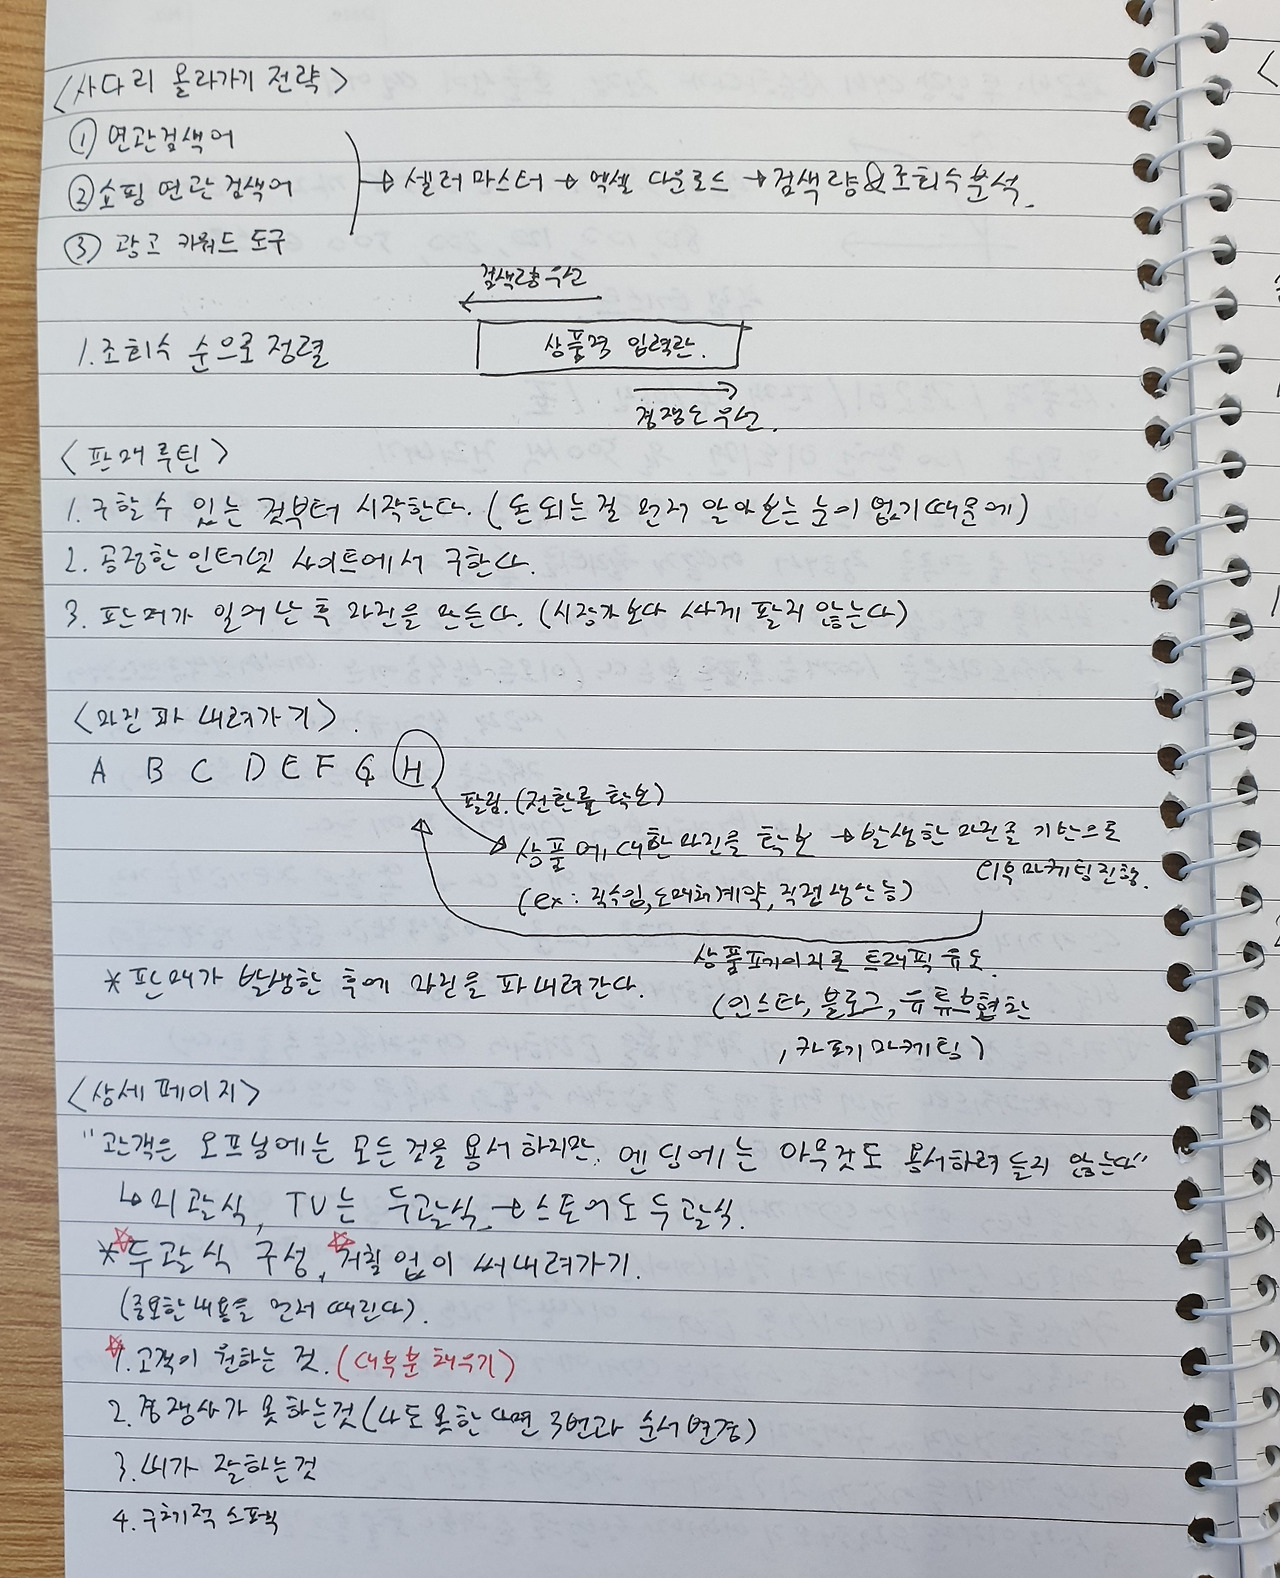 <사다리 올라가기 전략>
① 연관검색어
② 쇼핑 연관 검색어 → 셀러 마스터 → 엑셀 다운로드 → 검색량&조회수분석.
③ 광고 키워드 도구
검색량 우선
1. 조회수 순으로 정렬
상품명 입력란.
경쟁도 우선.
<판매루틴>
1. 구할 수 있는 것부터 시작한다. (돈 되는 걸 먼저 알아보는 눈이 없기 때문에)
2. 공정한 인터넷 사이트에서 구한다.
3. 판매가 일어난 후 마진을 만든다. (시장가보다 싸게 팔지 않는다)
<마진 파 내려가기>.
A B C D E F G H
팔림. (전환률 확보)
상품에 대한 마진을 확보 → 발생한 마진을 기반으로
외부마케팅진행.
(ex: 직수입, 도매처계약, 직접생산 등)
상품페이지로 트래픽 유도.
* 판매가 발생한 후에 마진을 파내려간다.
(인스타, 블로그, 유튜브협찬
, 카페마케팅)
<상세 페이지>
"관객은 오프닝에는 모든 것을 용서 하지만. 엔딩에는 아무것도 용서하려 들지 않는다"
↳ 미괄식, TV는 두괄식 → 스토어도 두괄식.
* ☆두괄식 구성, ☆거침없이 써내려가기.
(중요한 내용을 먼저 때린다).
☆1. 고객이 원하는 것. (대부분 채우기)
2. 경쟁사가 못하는것 (나도 못한다면 3번과 순서변경)
3. 내가 잘하는것
4. 구체적 스펙